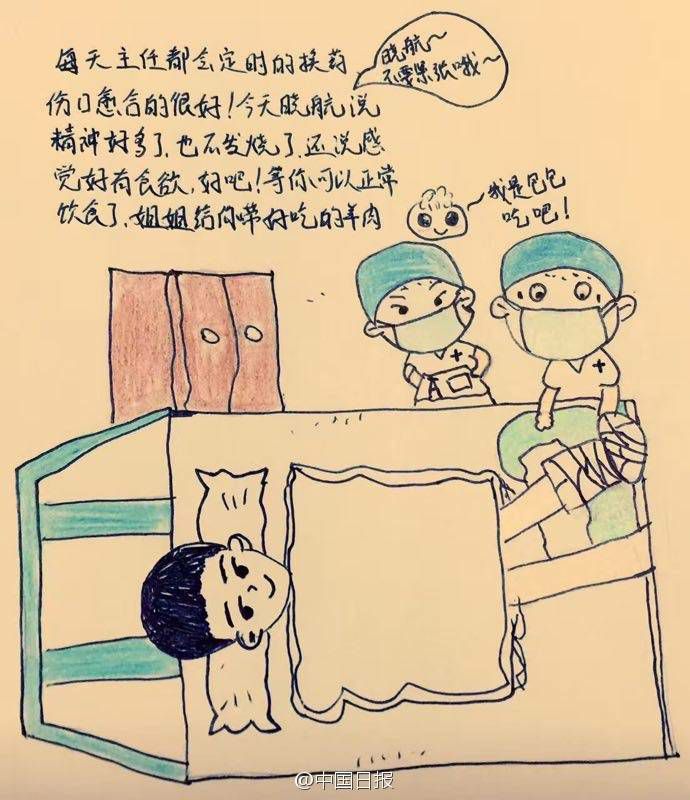 每天主任都会定时的换药
伤口愈合的很好！今天晓航说
精神好多了，也不发烧了，还说感
觉好有食欲，好吧！等你可以正常
饮食了，姐姐给你带好吃的羊肉
晓航～
不要紧张哦～
我是包包
吃吧！
@中国日报